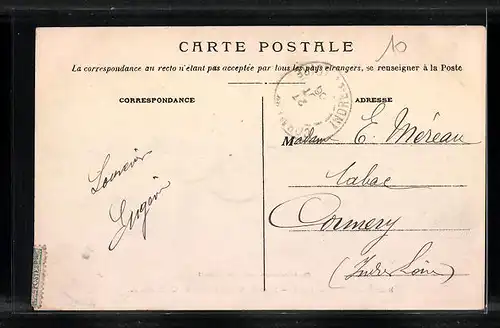 CARTE POSTALE
10
La correspondance au recto n'étant pas acceptée par tous les pays étrangers, se renseigner à la Poste
CORRESPONDANCE
ADRESSE
INDRE
Madame E. Méreau
Tabac
Cormery
(Indre Loire)
Eugénie